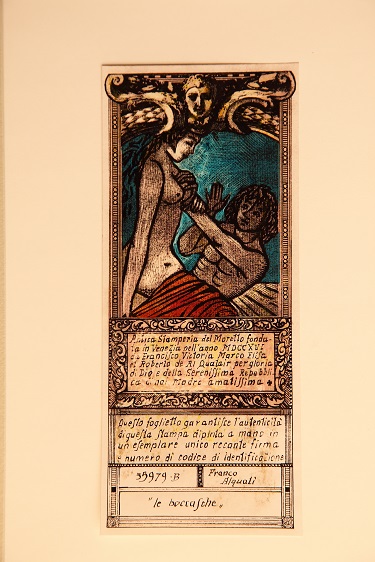 Antica Stamperia del Moretto fonda-
ta in Venezia nell'anno
da Francisco Victoria Marco Elisa
et Roberto de Al Qualair per gloria
di Dio e della Serenissima Repubbli
ca e noi Madre amatissima
Questo foglietto garantisce l'autenticità
di questa stampa dipinta a mano in
un esemplare unico recante firma
e numero di codice di identificazione
35979-B
Franco
Alquati
"le